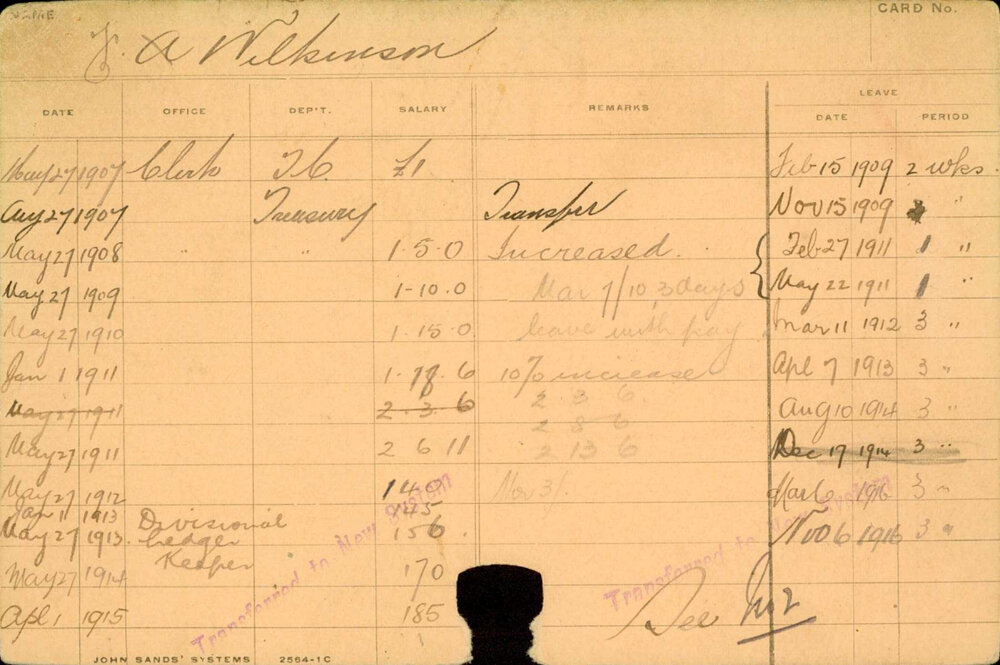 NAME
CARD No.
J. A Wilkinson
LEAVE
DATE OFFICE DEP'T. SALARY REMARKS DATE PERIOD
May 27 1907 Clerk T.C. £1 Feb 15 1909 2 wks.
Aug 27 1907 Treasury Transfer Nov 15 1909 "
May 27 1908 " " 1-5-0 Increased. Feb 27 1911 1 "
May 27 1909 1-10.0 Mar 7/10, 3 days May 22 1911 1 "
May 27 1910 1-15.0 leave with pay Mar 11 1912 3 "
Jan 1 1911 1-18.6 10% increase Apl 7 1913 3 "
May 27 1911 2.3.6 2 3 6 Aug 10 1914 3 "
2 8 6
May 27 1911 2 6 11 2 13 6 Dec 17 1914 3 "
May 27 1912 140 Nov 3/. Mar 6 1916 3 "
Jan 1 1913 Divisional 145
May 27 1913. Ledger 156 Nov 6 1916 3 "
Keeper
May 27 1914 170
Apl 1 1915 185 See No 2
Transferred to New System
Transferred to New System
JOHN SANDS' SYSTEMS 2564-1C